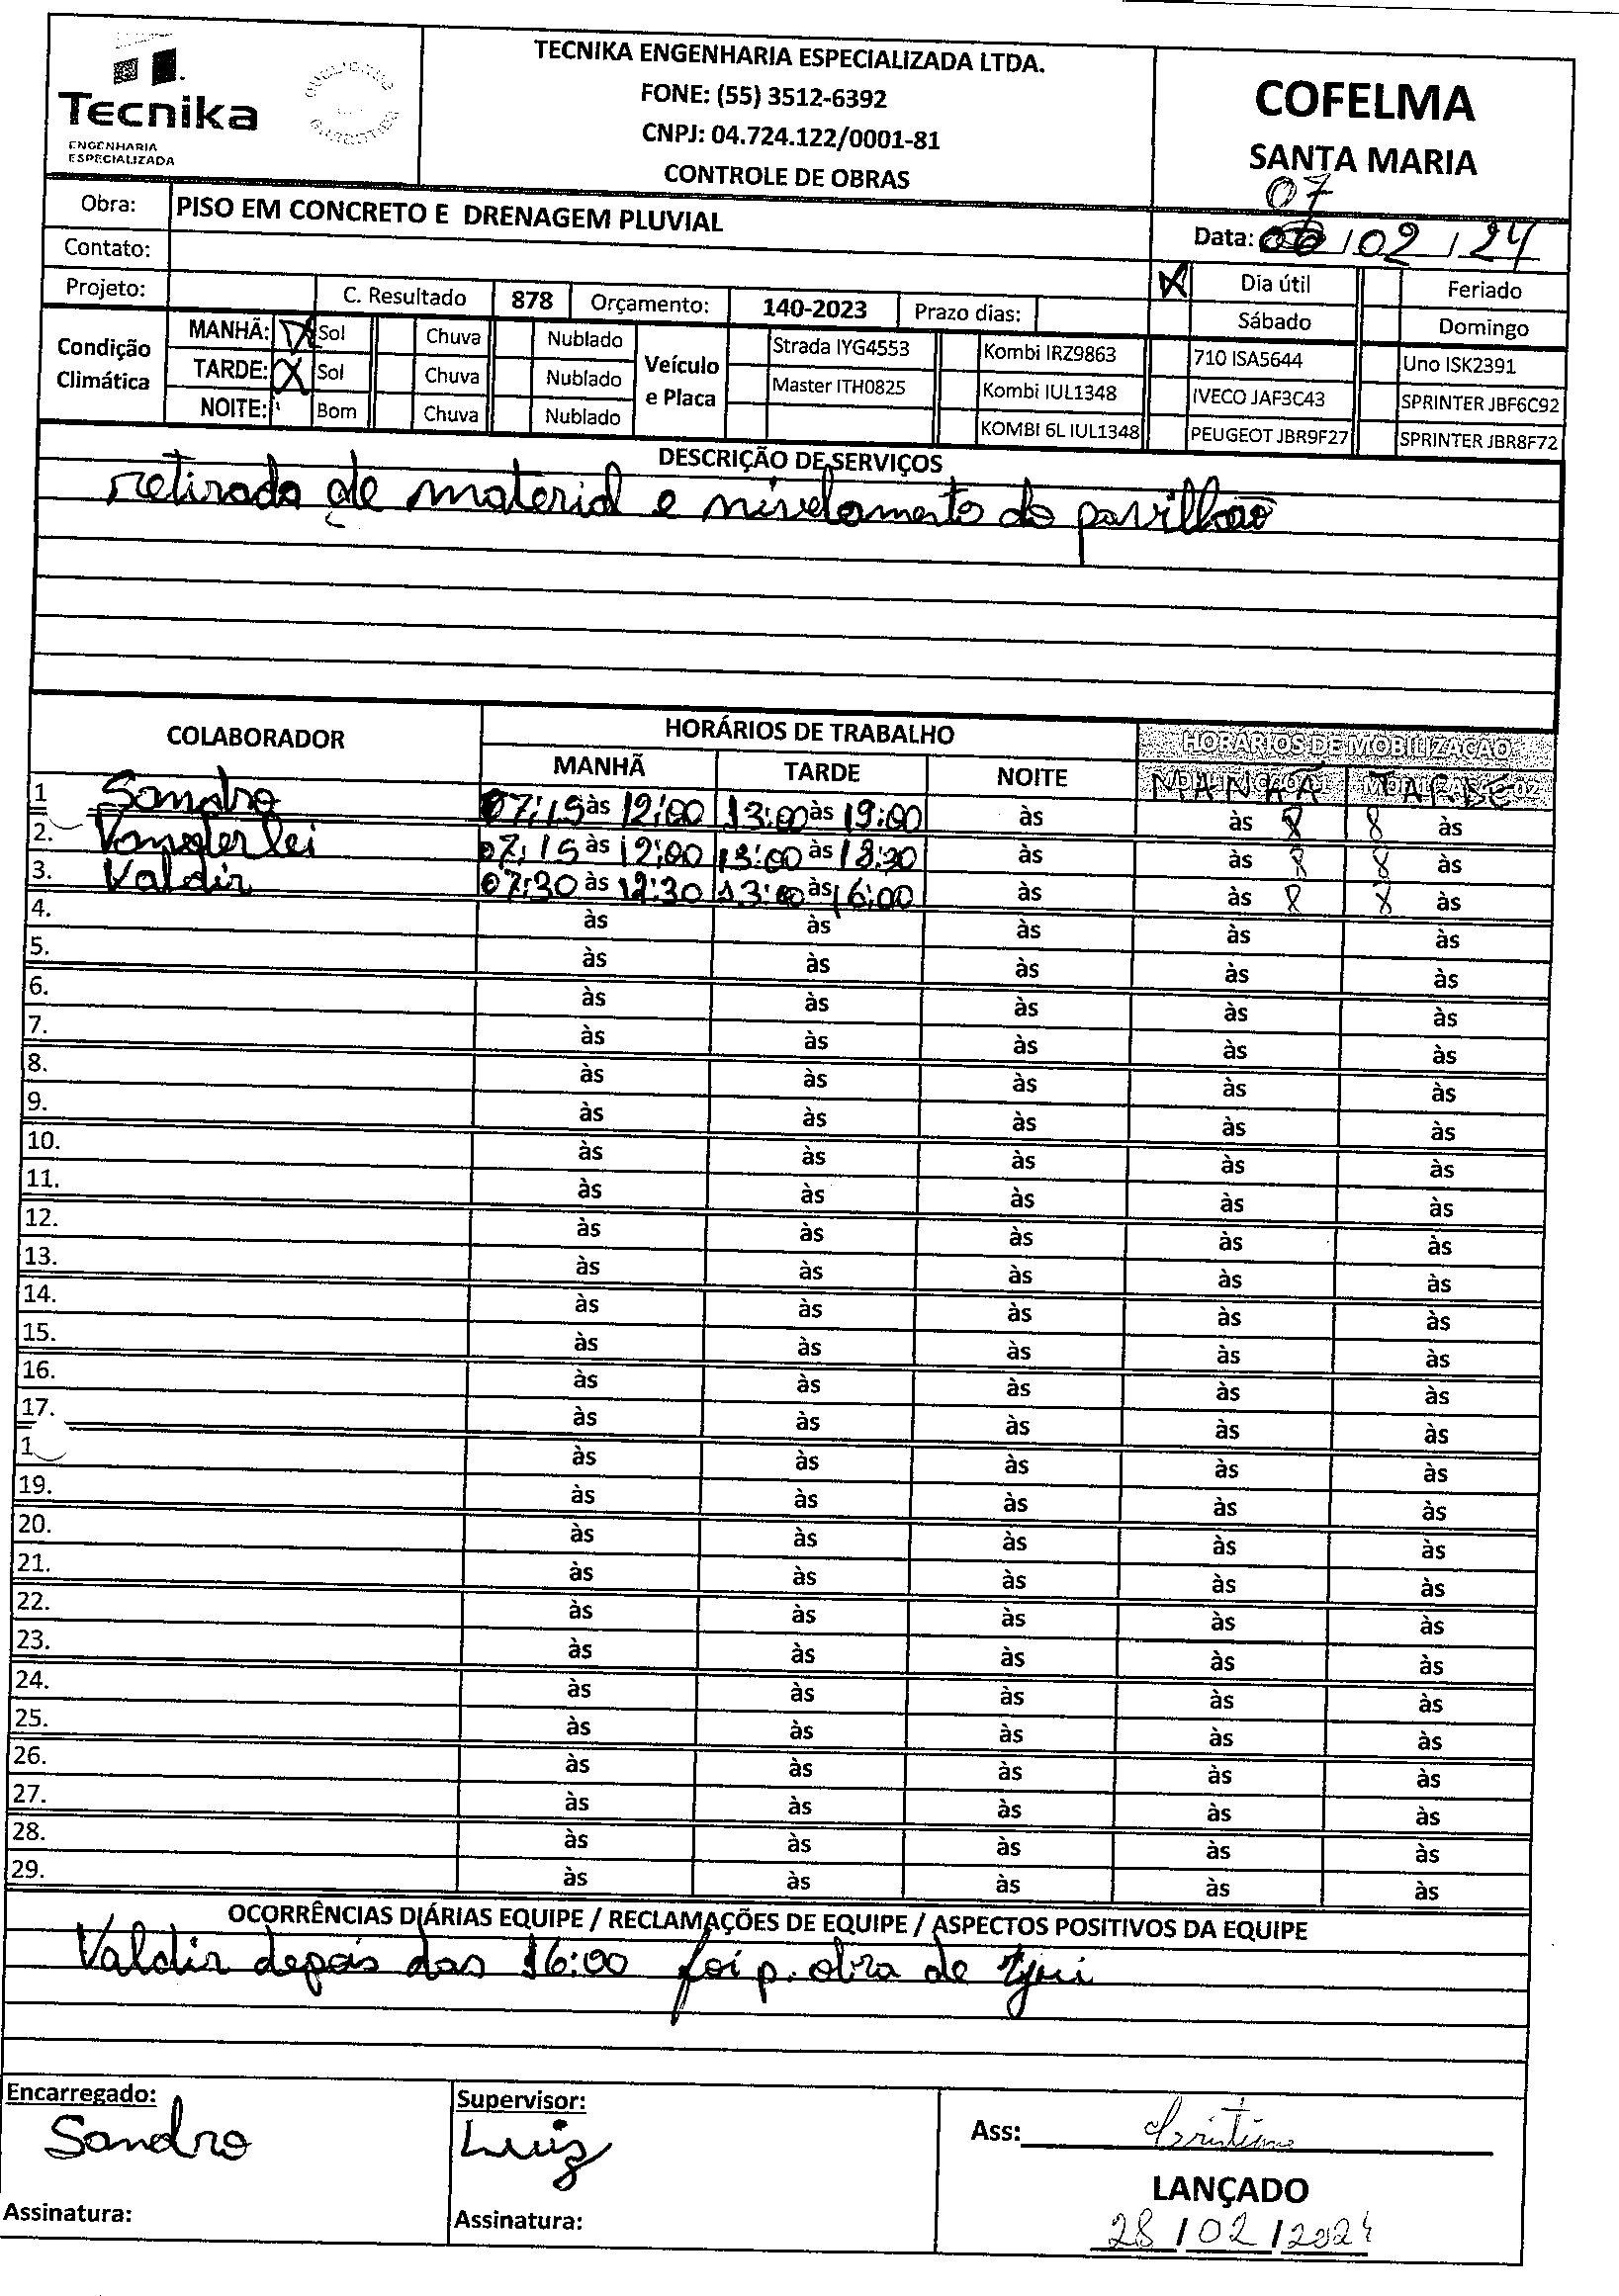 Tecnika
ENGENHARIA
ESPECIALIZADA
TECNIKA ENGENHARIA ESPECIALIZADA LTDA.
FONE: (55) 3512-6392
CNPJ: 04.724.122/0001-81
CONTROLE DE OBRAS
COFELMA
SANTA MARIA
Obra: PISO EM CONCRETO E DRENAGEM PLUVIAL
07
Data: /02/24
Contato:
X Dia útil Feriado
Projeto: C. Resultado 878 Orçamento: 140-2023 Prazo dias: Sábado Domingo
Condição Climática
MANHÃ: X Sol Chuva Nublado
TARDE: X Sol Chuva Nublado
NOITE: Bom Chuva Nublado
Veículo e Placa
Strada IYG4553 Kombi IRZ9863 710 ISA5644 Uno ISK2391
Master ITH0825 Kombi IUL1348 IVECO JAF3C43 SPRINTER JBF6C92
KOMBI 6L IUL1348 PEUGEOT JBR9F27 SPRINTER JBR8F72
DESCRIÇÃO DE SERVIÇOS
retirada de material e nivelamento do pavilhão
COLABORADOR HORÁRIOS DE TRABALHO HORÁRIOS DE MOBILIZAÇÃO
MANHÃ TARDE NOITE MANHÃ TARDE
1 Sandro 07:15 às 12:00 13:00 às 19:00 às às 8 8 às
2. Vanderlei 07:15 às 12:00 13:00 às 18:30 às às 8 8 às
3. Valdir 07:30 às 12:30 13:00 às 16:00 às às 8 8 às
4. às às às às às
5. às às às às às
6. às às às às às
7. às às às às às
8. às às às às às
9. às às às às às
10. às às às às às
11. às às às às às
12. às às às às às
13. às às às às às
14. às às às às às
15. às às às às às
16. às às às às às
17. às às às às às
1 às às às às às
19. às às às às às
20. às às às às às
21. às às às às às
22. às às às às às
23. às às às às às
24. às às às às às
25. às às às às às
26. às às às às às
27. às às às às às
28. às às às às às
29. às às às às às
OCORRÊNCIAS DIÁRIAS EQUIPE / RECLAMAÇÕES DE EQUIPE / ASPECTOS POSITIVOS DA EQUIPE
Valdir depois das 16:00 foi p. obra de
Encarregado: Supervisor:
Sandro Luiz Ass:
LANÇADO
Assinatura: Assinatura: 28/02/2024